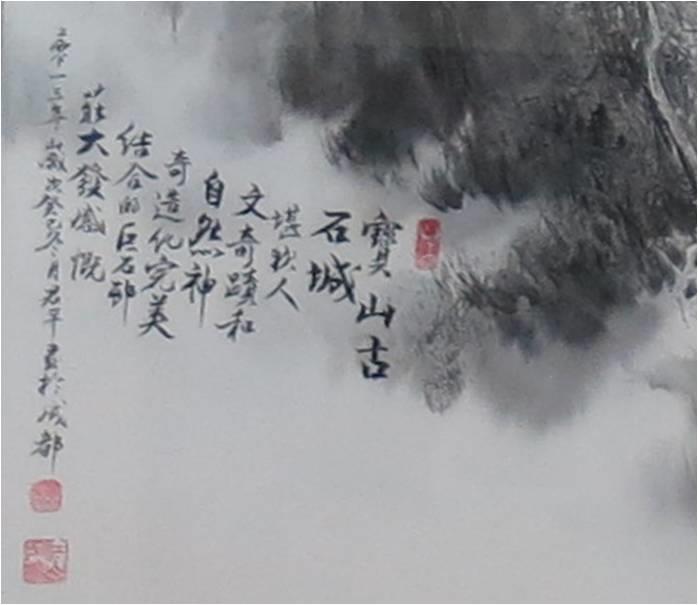 寶山古
石城
堪稱人
文奇蹟和
自然神
奇造化完美
结合的巨石邨
莊大發感慨
二零一三年歲次癸巳冬月君平畫於成都